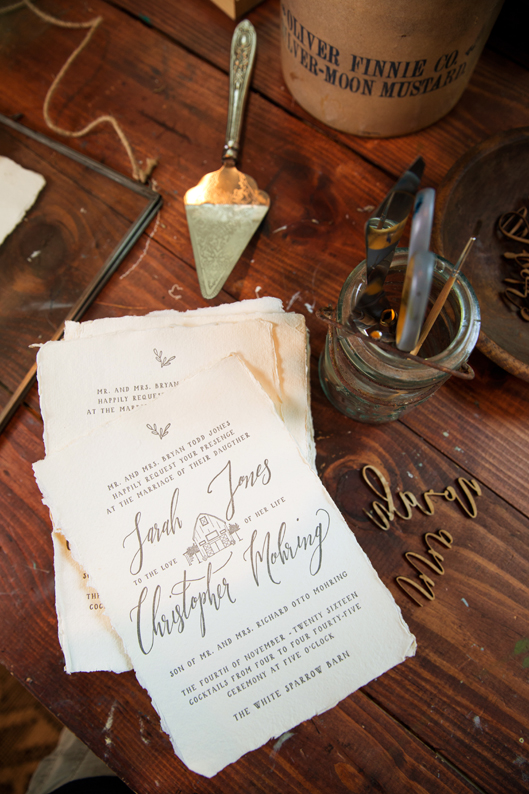 OLIVER FINNIE CO.
LVER-MOON MUSTARD
MR. AND MRS. BRYAN
HAPPILY REQUEST
AT THE MARR
MR. AND MRS. BRYAN TODD JONES
HAPPILY REQUEST YOUR PRESENCE
AT THE MARRIAGE OF THEIR DAUGTHER
Sarah Jones
TO THE LOVE OF HER LIFE
Christopher Mohring
SON OF MR. AND MRS. RICHARD OTTO MOHRING
THE FOURTH OF NOVEMBER - TWENTY SIXTEEN
COCKTAILS FROM FOUR TO FOUR FOURTY-FIVE
CEREMONY AT FIVE O'CLOCK
THE WHITE SPARROW BARN
COCK